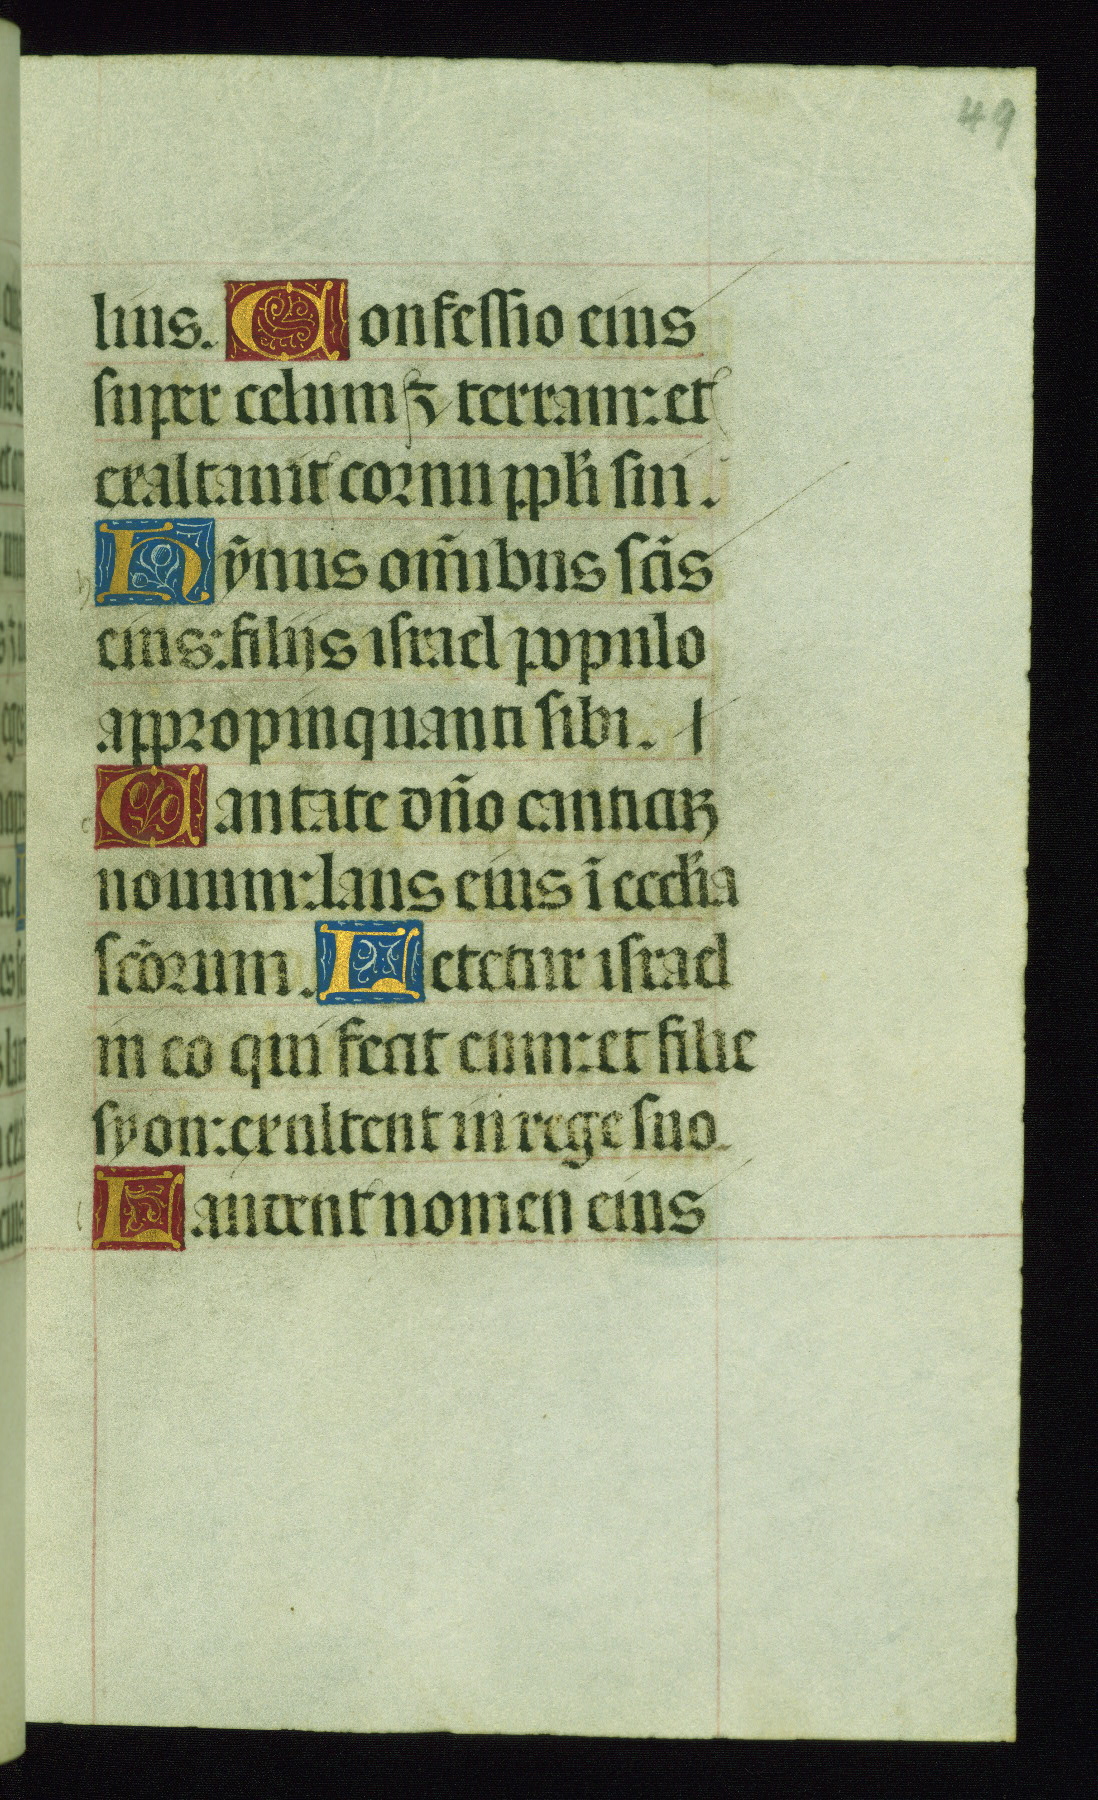 49
lius. Confessio eius
super celum ⁊ terram: et
exaltauit cornu ppl̄i sui.
Hȳnus om̄ibus sc̄is
eius: filijs israel populo
appropinquanti sibi.
Cantate dn̄o canticꝝ
nouum: laus eius ī eccl̄ia
sc̄orum. Letetur israel
in eo qui fecit eum: et filie
syon: exultent in rege suo.
Laudent nomen eius